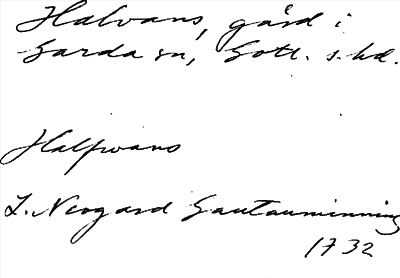 Halvans, gård i
Garda sn, Gotl. s. hd.
Halfvans
L. Neogard Gautauminning
1732